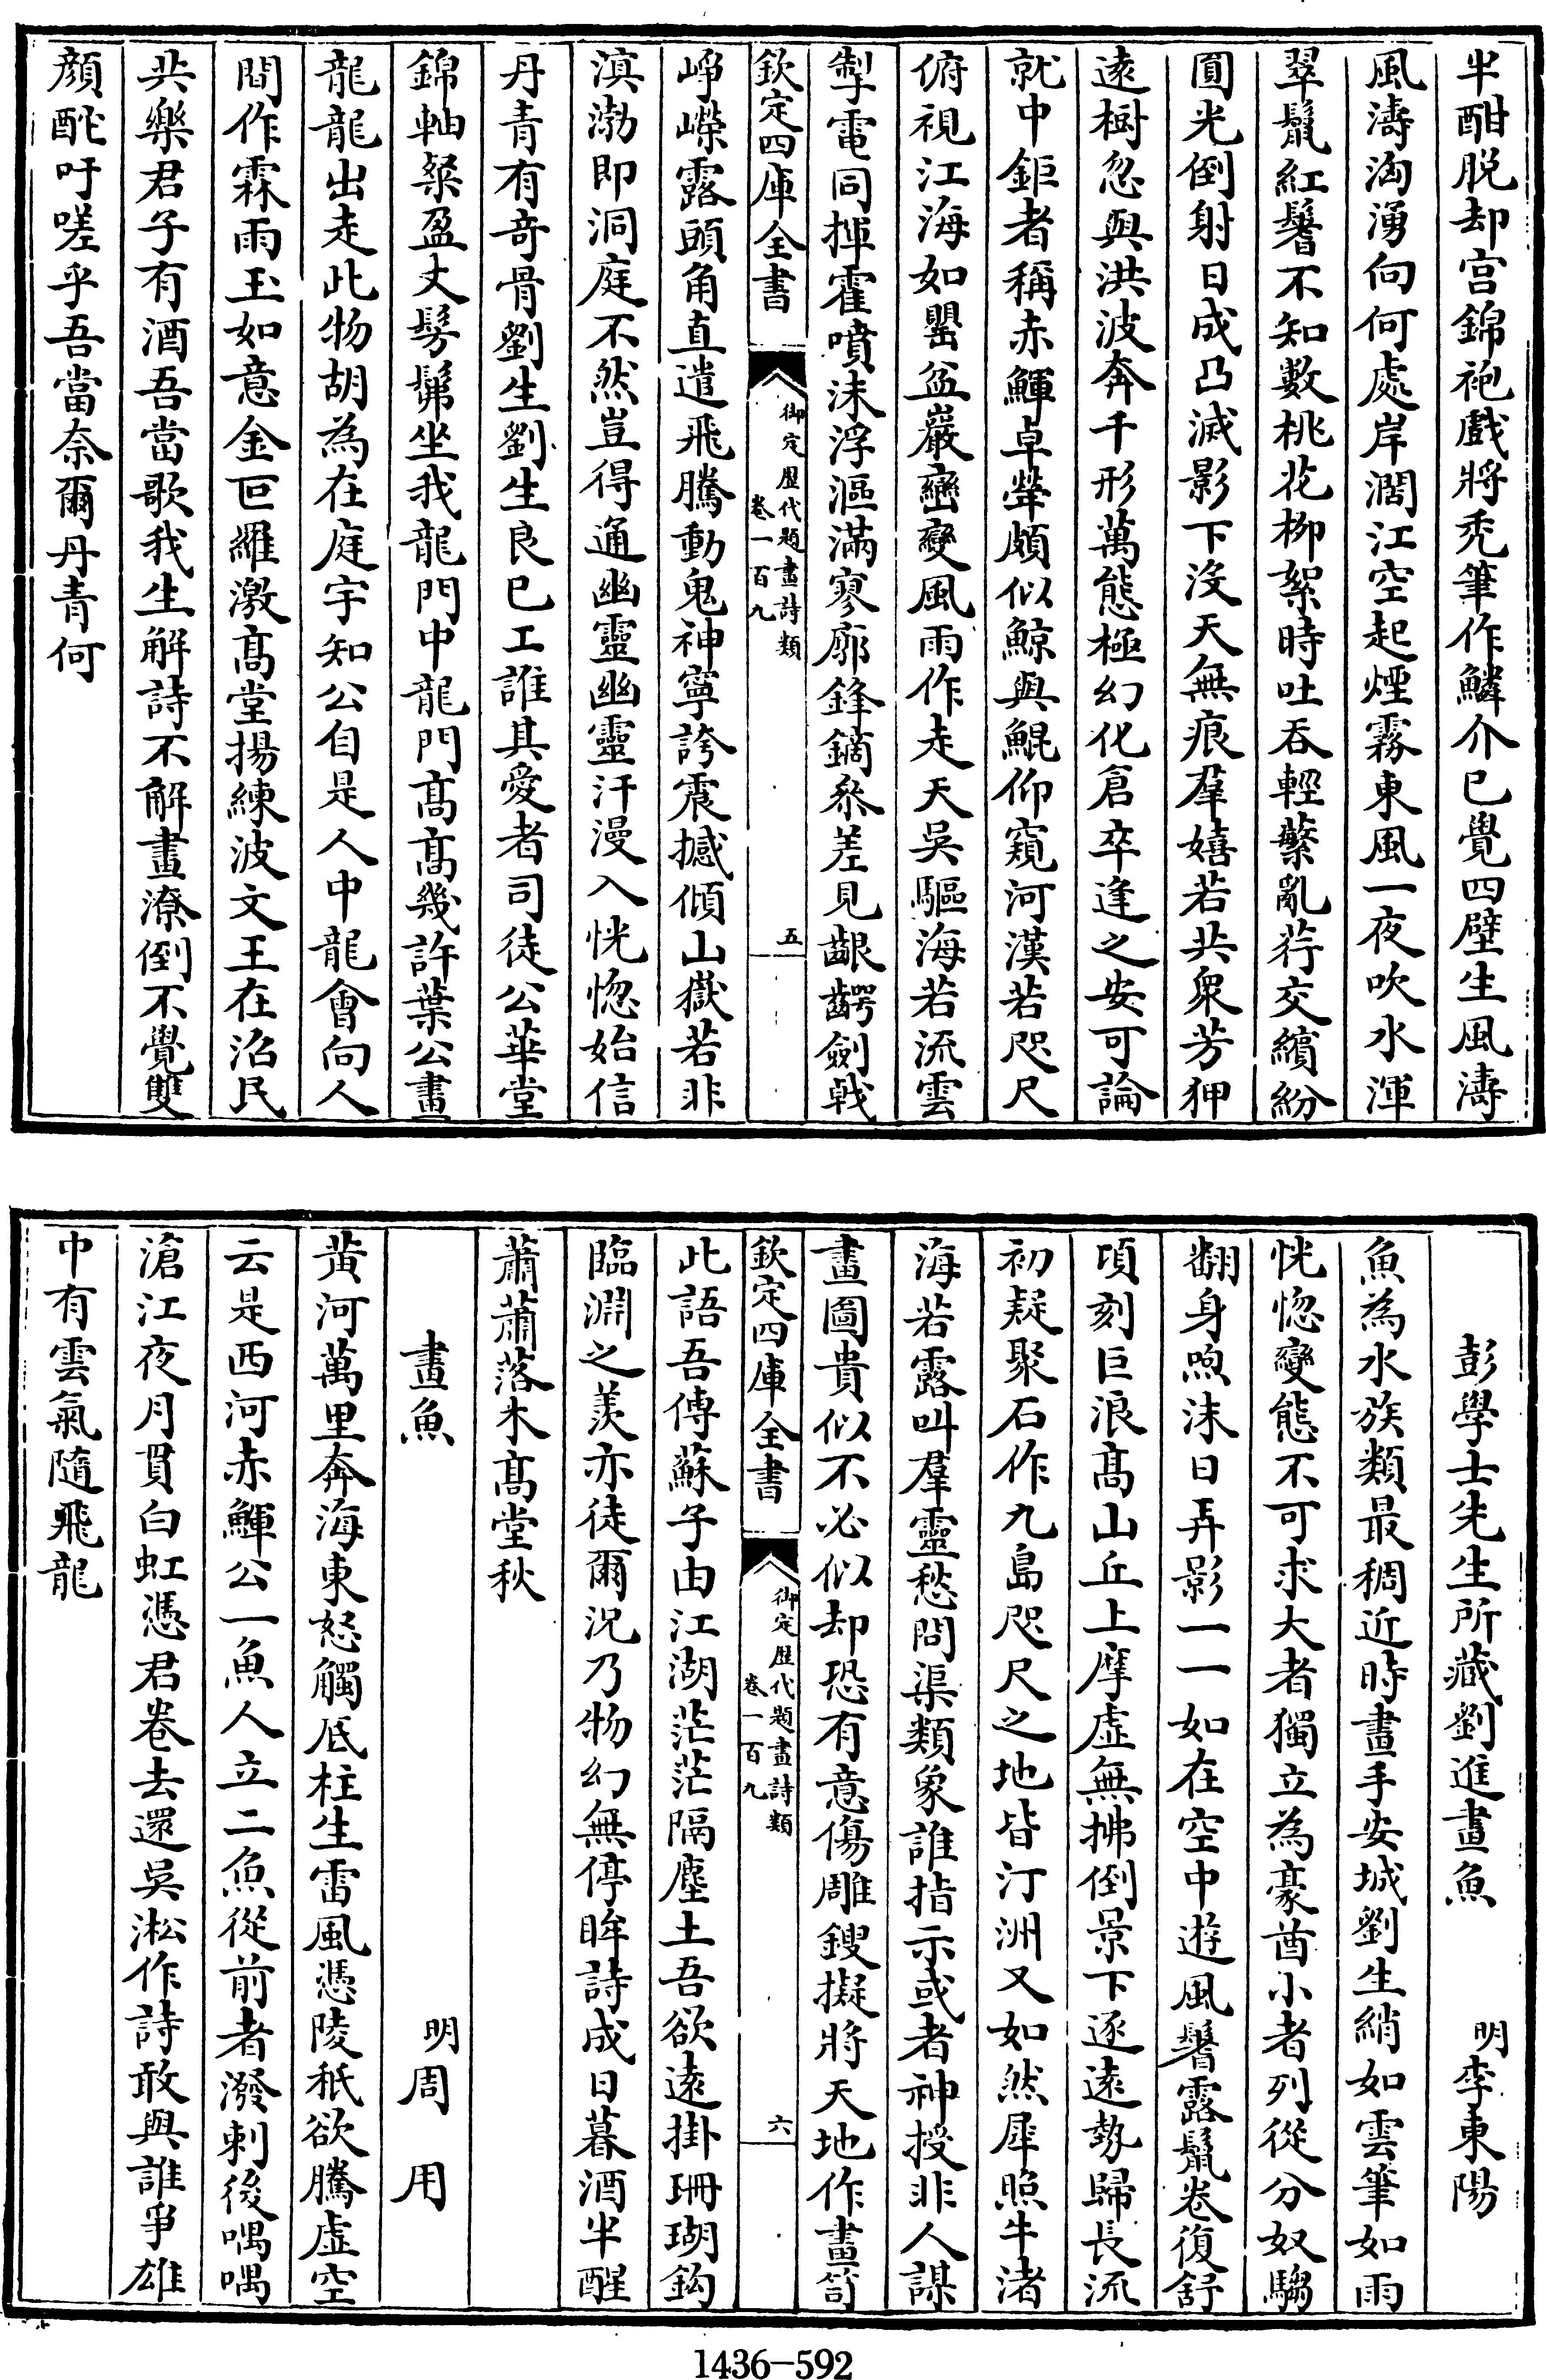 半酣脱却宫錦袍戲將秃筆作鱗介已覺四壁生風濤
風濤洶湧向何處岸濶江空起煙霧東風一夜吹水渾
翠鬛紅鬐不知數桃花柳絮時吐吞輕蘩亂荇交繽紛
圓光倒射日成凸滅影下沒天無痕羣嬉若共衆芳狎
逺樹忽與洪波奔千形萬態極幻化倉卒逢之安可論
就中鉅者稱赤鯶卓犖頗似鯨與鯤仰窺河漢若咫尺
俯視江海如罌盆巖巒變風雨作走天吳驅海若流雲
掣電同揮霍噴沫浮漚滿寥廓鋒鏑叅差見齦齶劍戟
欽定四庫全書
御定歴代題畫詩類
卷一百九
五
崢嶸露頭角直遣飛騰動鬼神寧誇震撼傾山嶽若非
滇渤即洞庭不然豈得通幽靈幽靈汗漫入恍惚始信
丹青有竒骨劉生劉生良已工誰其愛者司徒公華堂
錦軸粲盈丈髣髴坐我龍門中龍門髙髙幾許葉公畫
龍龍出走此物胡為在庭宇知公自是人中龍會向人
間作霖雨玉如意金叵羅激髙堂揚練波文王在沼民
共樂君子有酒吾當歌我生解詩不解畫潦倒不覺雙
顔酡吁嗟乎吾當奈爾丹青何
彭學士先生所藏劉進畫魚　明李東陽
魚為水族類最稠近時畫手安城劉生綃如雲筆如雨
恍惚變態不可求大者獨立為豪酋小者列從分奴騶
翻身喣沫日弄影一一如在空中遊風鬐露鬛卷復舒
頃刻巨浪髙山丘上摩虛無拂倒景下逐逺勢歸長流
初疑聚石作九島咫尺之地皆汀洲又如然犀照牛渚
海若露叫羣靈愁問渠類象誰指示或者神授非人謀
畫圖貴似不必似却恐有意傷雕鎪擬將天地作畫笥
欽定四庫全書
御定歴代題畫詩類
卷一百九
六
此語吾傳蘇子由江湖茫茫隔塵土吾欲逺掛珊瑚鈎
臨淵之羨亦徒爾況乃物幻無停眸詩成日暮酒半醒
蕭蕭落木髙堂秋
畫魚　明周用
黄河萬里奔海東怒觸厎柱生雷風憑陵秖欲騰虛空
云是西河赤鯶公一魚人立二魚從前者潑剌後喁喁
滄江夜月貫白虹憑君卷去還吳淞作詩敢與誰爭雄
中有雲氣隨飛龍
1436-592